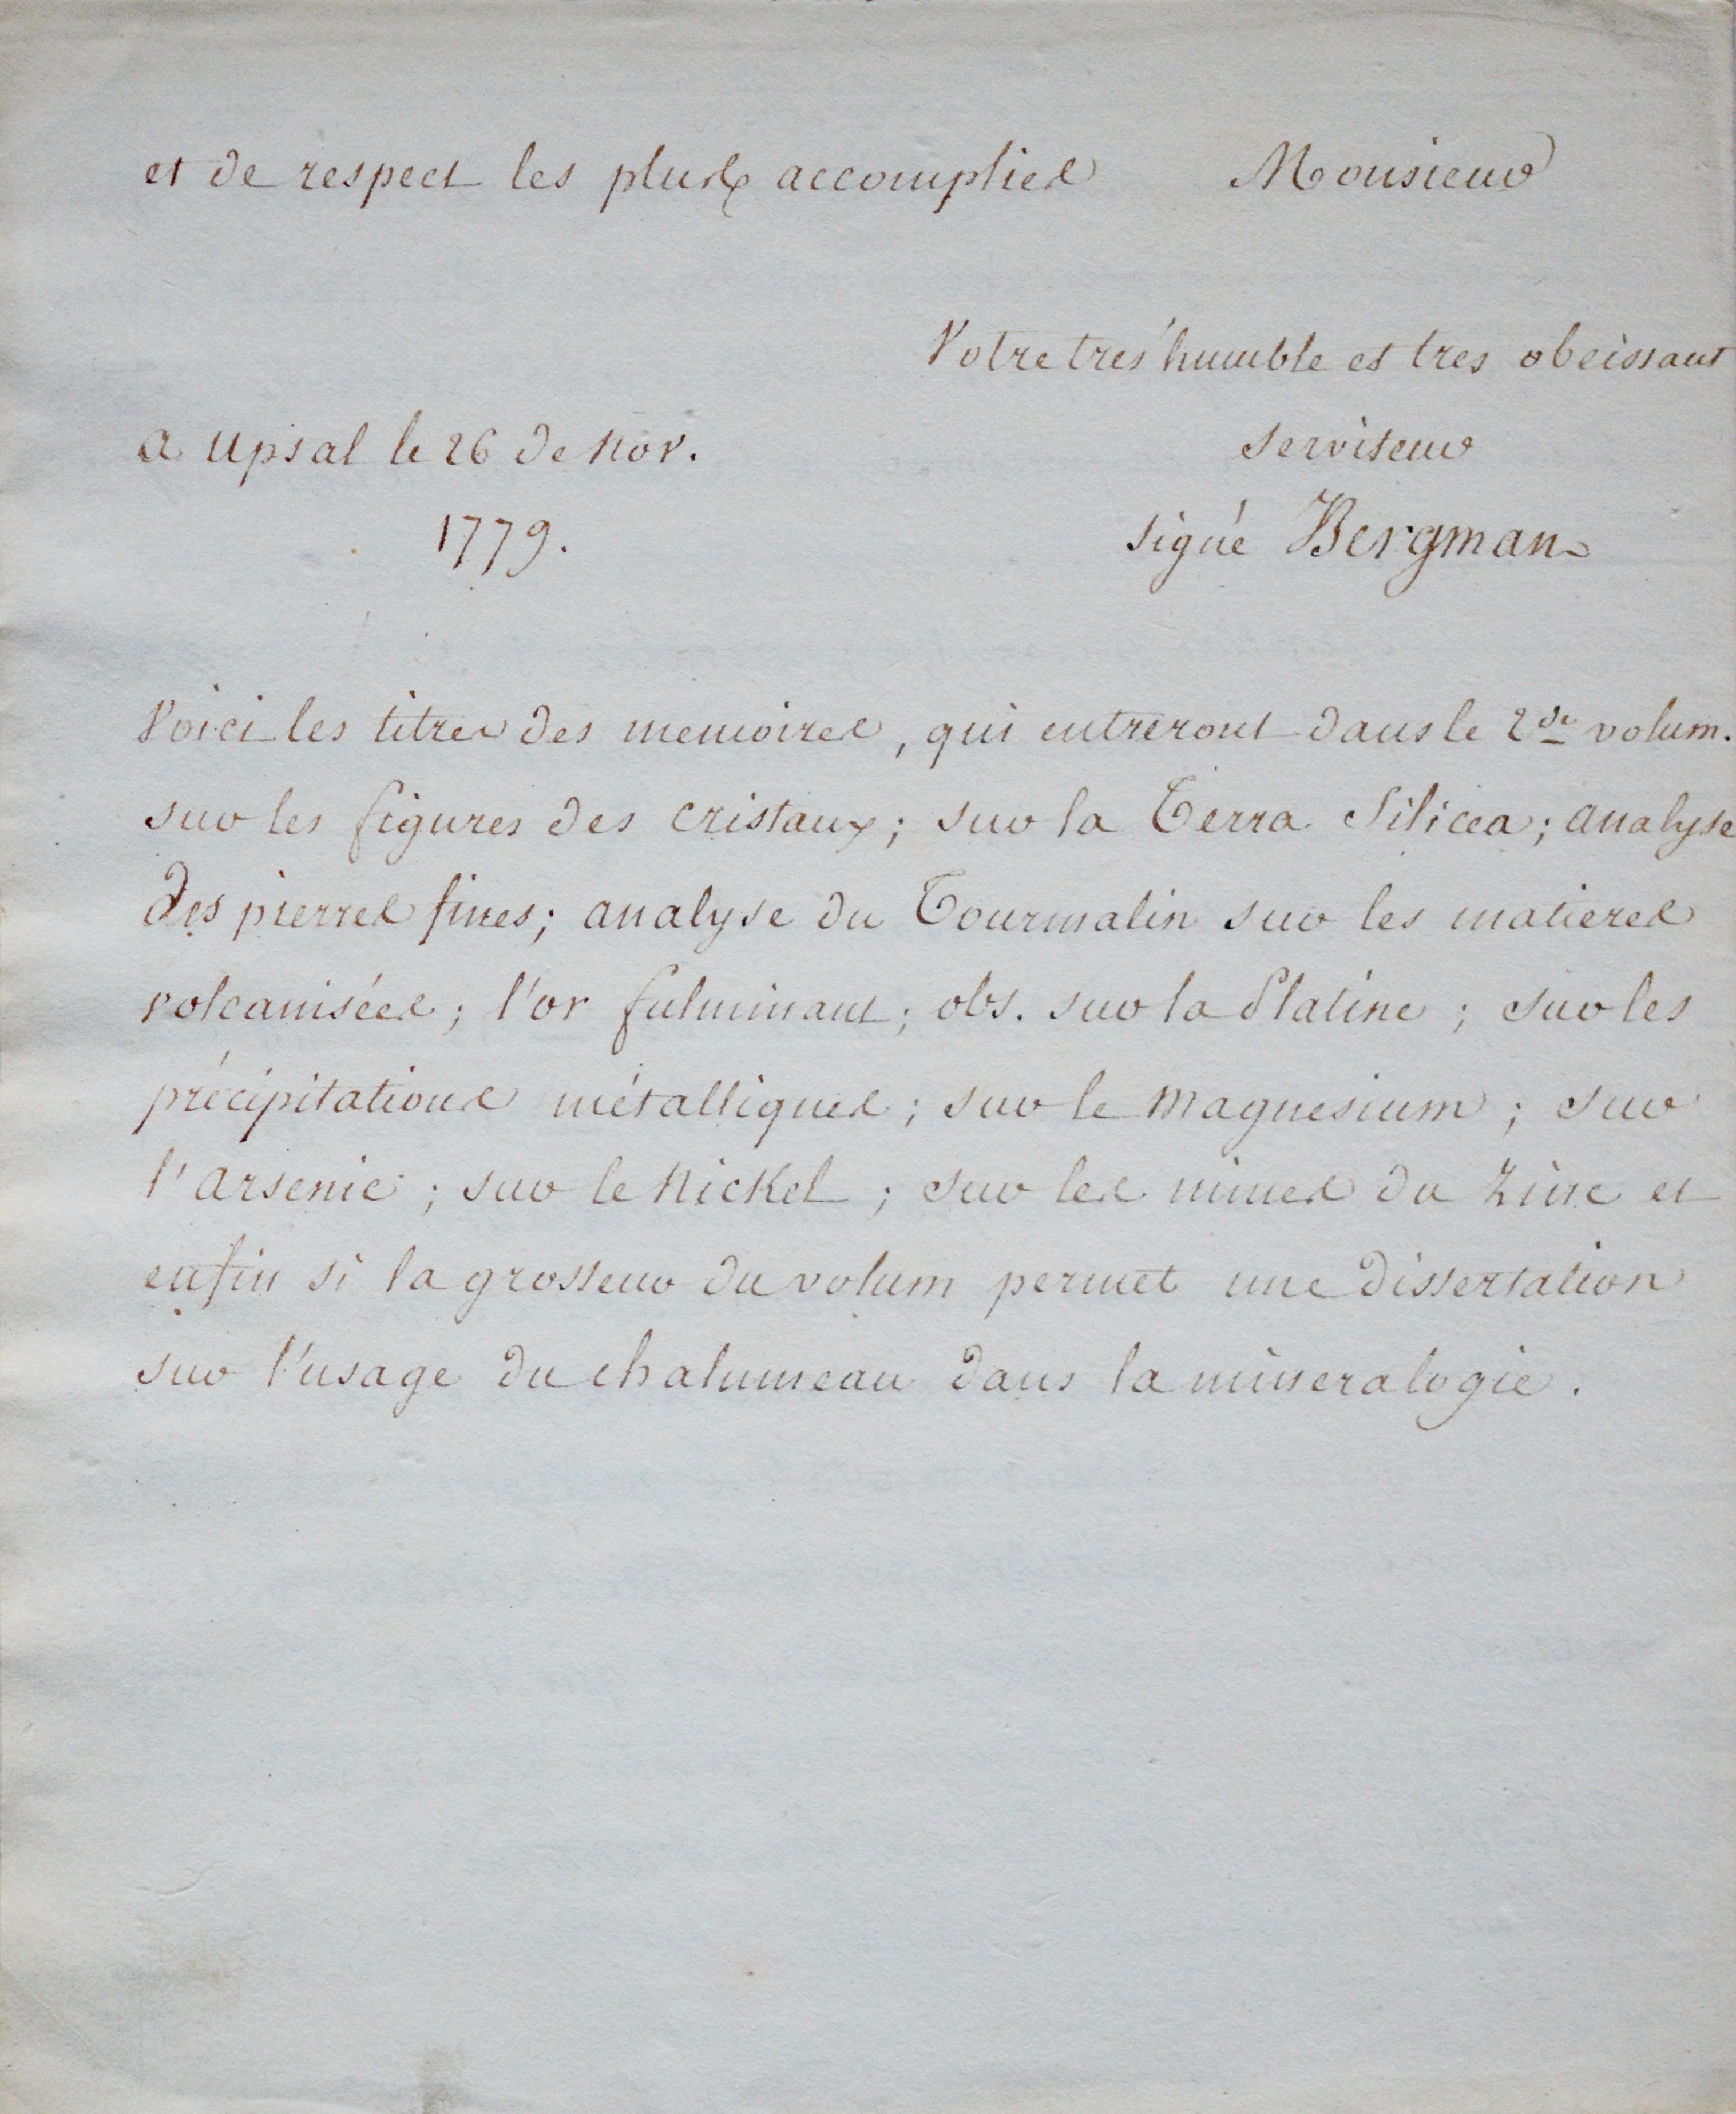 et de respect les plus accomplies Monsieur
Votre trés humble et tres obeissant
a Upsal le 26 de Nov. serviteur
1779. signé Bergman
Voici les titres des memoires, qui entreront dans le 2de volum.
sur les figures des cristaux; sur la Terra Silicea; analyse
des pierres fines; analyse du Tourmalin sur les matieres
volcanisées; l'or fulminant; obs. sur la Platine; sur les
précipitations métalliques; sur le Magnesium; sur
l'Arsenic; sur le Nickel; sur les mines du Zinc et
enfin si la grosseur du volum permet une dissertation
sur l'usage du chalumeau dans la mineralogie.